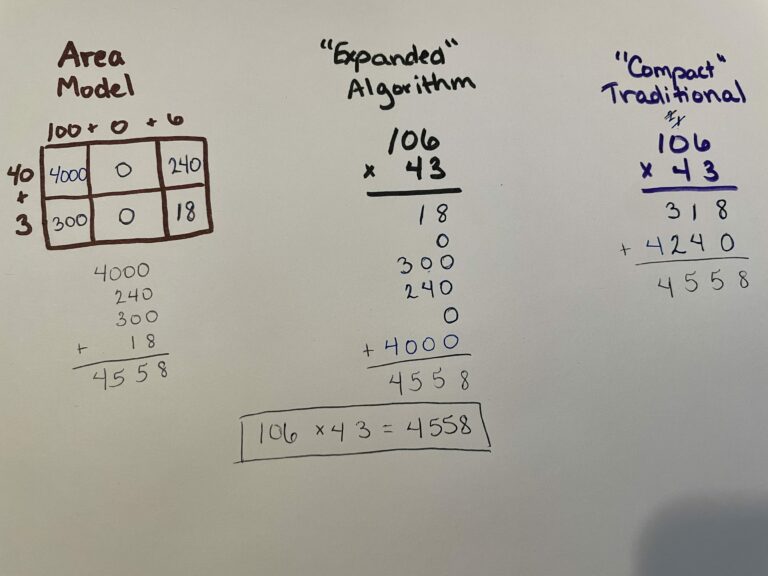 Area
Model
100 + 0 + 6
40 4000 0 240
+
3 300 0 18
4000
240
300
+ 18
4558
"Expanded"
Algorithm
106
× 43
18
0
300
240
0
+ 4000
4558
106 × 43 = 4558
"Compact"
Traditional
106
× 43
318
+ 4240
4558